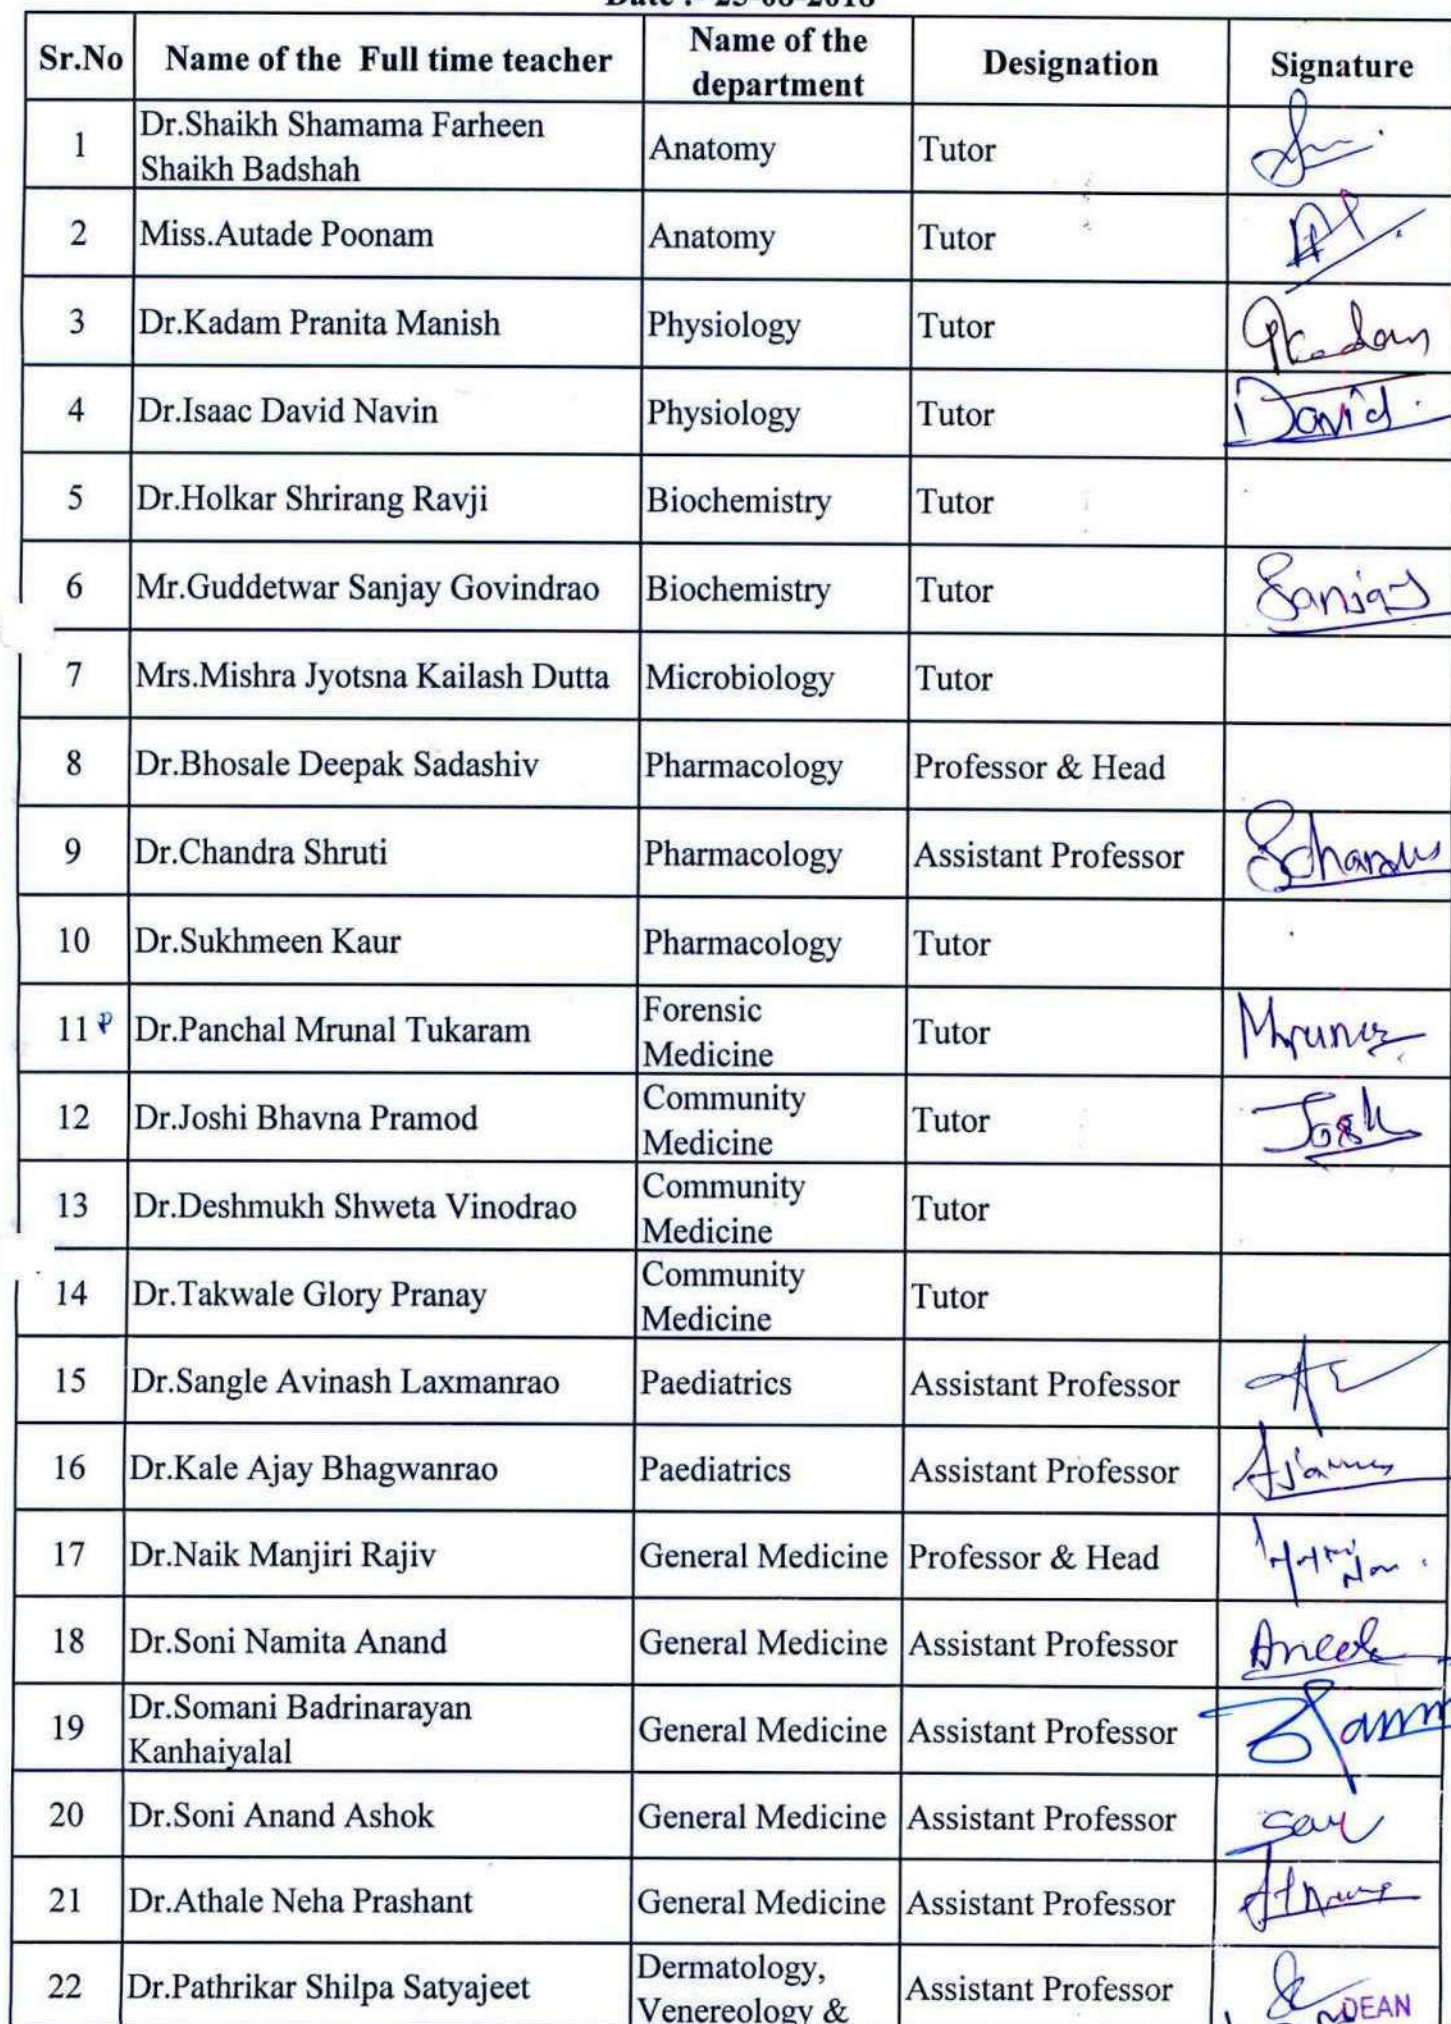 Date :- 25-08-2018
Sr.No Name of the Full time teacher Name of the department Designation Signature
1 Dr.Shaikh Shamama Farheen Shaikh Badshah Anatomy Tutor
2 Miss.Autade Poonam Anatomy Tutor
3 Dr.Kadam Pranita Manish Physiology Tutor
4 Dr.Isaac David Navin Physiology Tutor David
5 Dr.Holkar Shrirang Ravji Biochemistry Tutor
6 Mr.Guddetwar Sanjay Govindrao Biochemistry Tutor Sanjay
7 Mrs.Mishra Jyotsna Kailash Dutta Microbiology Tutor
8 Dr.Bhosale Deepak Sadashiv Pharmacology Professor & Head
9 Dr.Chandra Shruti Pharmacology Assistant Professor
10 Dr.Sukhmeen Kaur Pharmacology Tutor
11 Dr.Panchal Mrunal Tukaram Forensic Medicine Tutor
12 Dr.Joshi Bhavna Pramod Community Medicine Tutor
13 Dr.Deshmukh Shweta Vinodrao Community Medicine Tutor
14 Dr.Takwale Glory Pranay Community Medicine Tutor
15 Dr.Sangle Avinash Laxmanrao Paediatrics Assistant Professor
16 Dr.Kale Ajay Bhagwanrao Paediatrics Assistant Professor
17 Dr.Naik Manjiri Rajiv General Medicine Professor & Head
18 Dr.Soni Namita Anand General Medicine Assistant Professor
19 Dr.Somani Badrinarayan Kanhaiyalal General Medicine Assistant Professor
20 Dr.Soni Anand Ashok General Medicine Assistant Professor
21 Dr.Athale Neha Prashant General Medicine Assistant Professor
22 Dr.Pathrikar Shilpa Satyajeet Dermatology, Venereology & Assistant Professor
DEAN